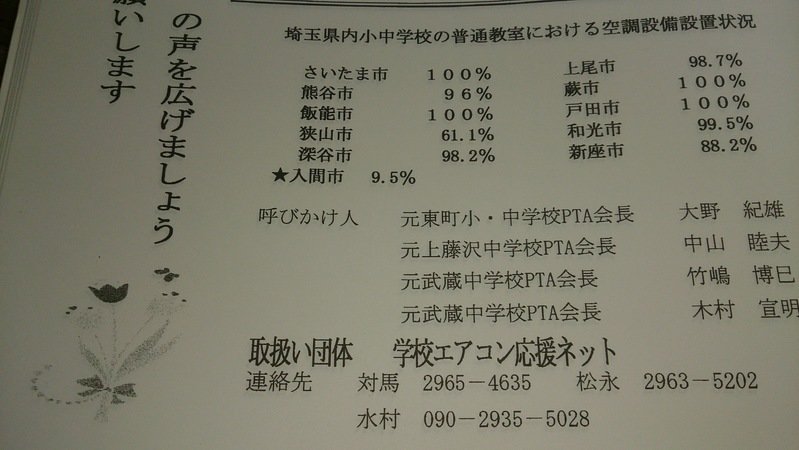 の声を広げましょう
願いします
埼玉県内小中学校の普通教室における空調設備設置状況
さいたま市 100% 上尾市 98.7%
熊谷市 96% 蕨市 100%
飯能市 100% 戸田市 100%
狭山市 61.1% 和光市 99.5%
深谷市 98.2% 新座市 88.2%
★入間市 9.5%
呼びかけ人 元東町小・中学校PTA会長 大野 紀雄
元上藤沢中学校PTA会長 中山 睦夫
元武蔵中学校PTA会長 竹嶋 博巳
元武蔵中学校PTA会長 木村 宣明
取扱い団体 学校エアコン応援ネット
連絡先 対馬 2965-4635 松永 2963-5202
水村 090-2935-5028